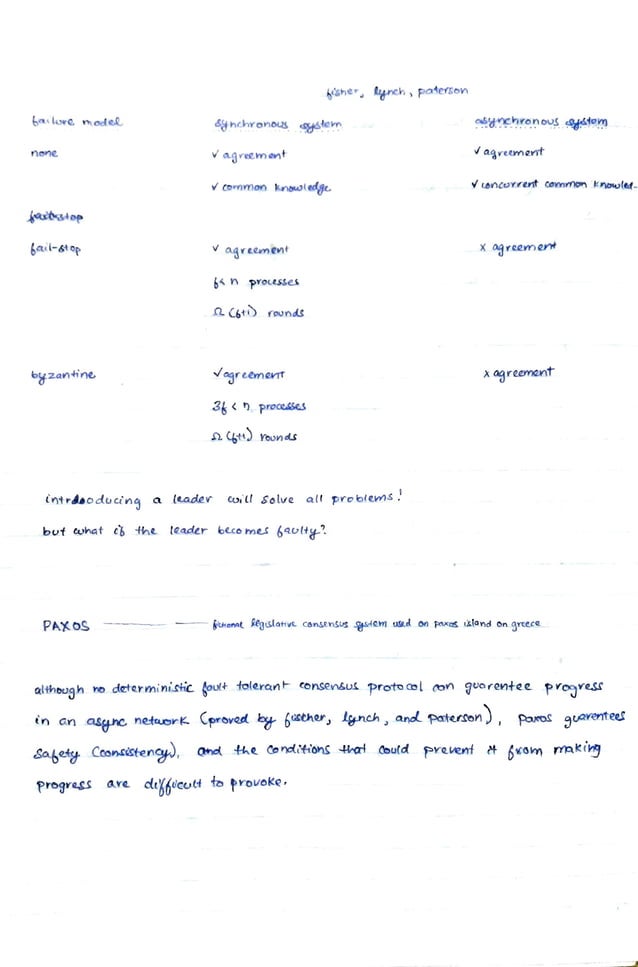 fisher, lynch, paterson
failure model synchronous system asynchronous system
none ✓ agreement ✓ agreement
✓ common knowledge ✓ concurrent common knowled-
fail-stop ✓ agreement x agreement
f < n processes
Ω (f+1) rounds
byzantine ✓ agreement x agreement
3f < n processes
Ω (f+1) rounds
introducing a leader will solve all problems!
but what if the leader becomes faulty?
PAXOS fictional legislative consensus system used on paxos island on greece
although no deterministic fault tolerant consensus protocol can guarentee progress
in an async network (proved by fischer, lynch, and paterson), paxos guarentees
safety (consistency), and the conditions that could prevent it from making
progress are difficult to provoke.